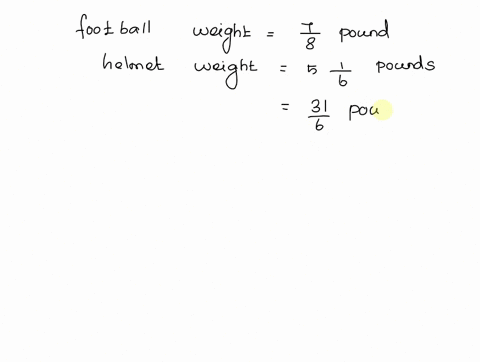 football weight = 7/8 pound
helmet weight = 5 1/6 pounds
= 31/6 pou